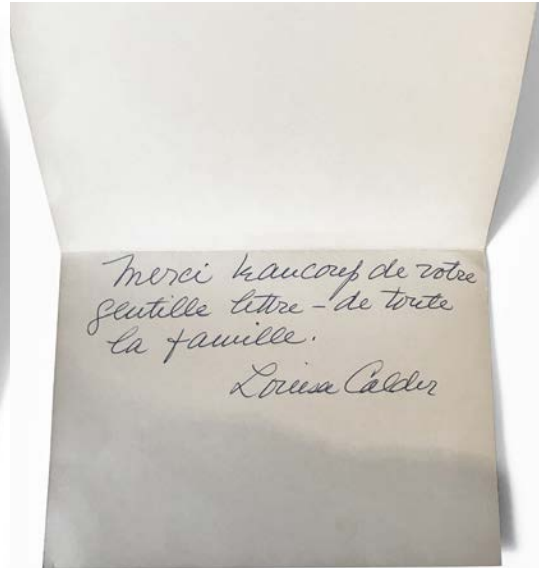 Merci beaucoup de votre
gentille lettre - de toute
la famille.
Louisa Calder